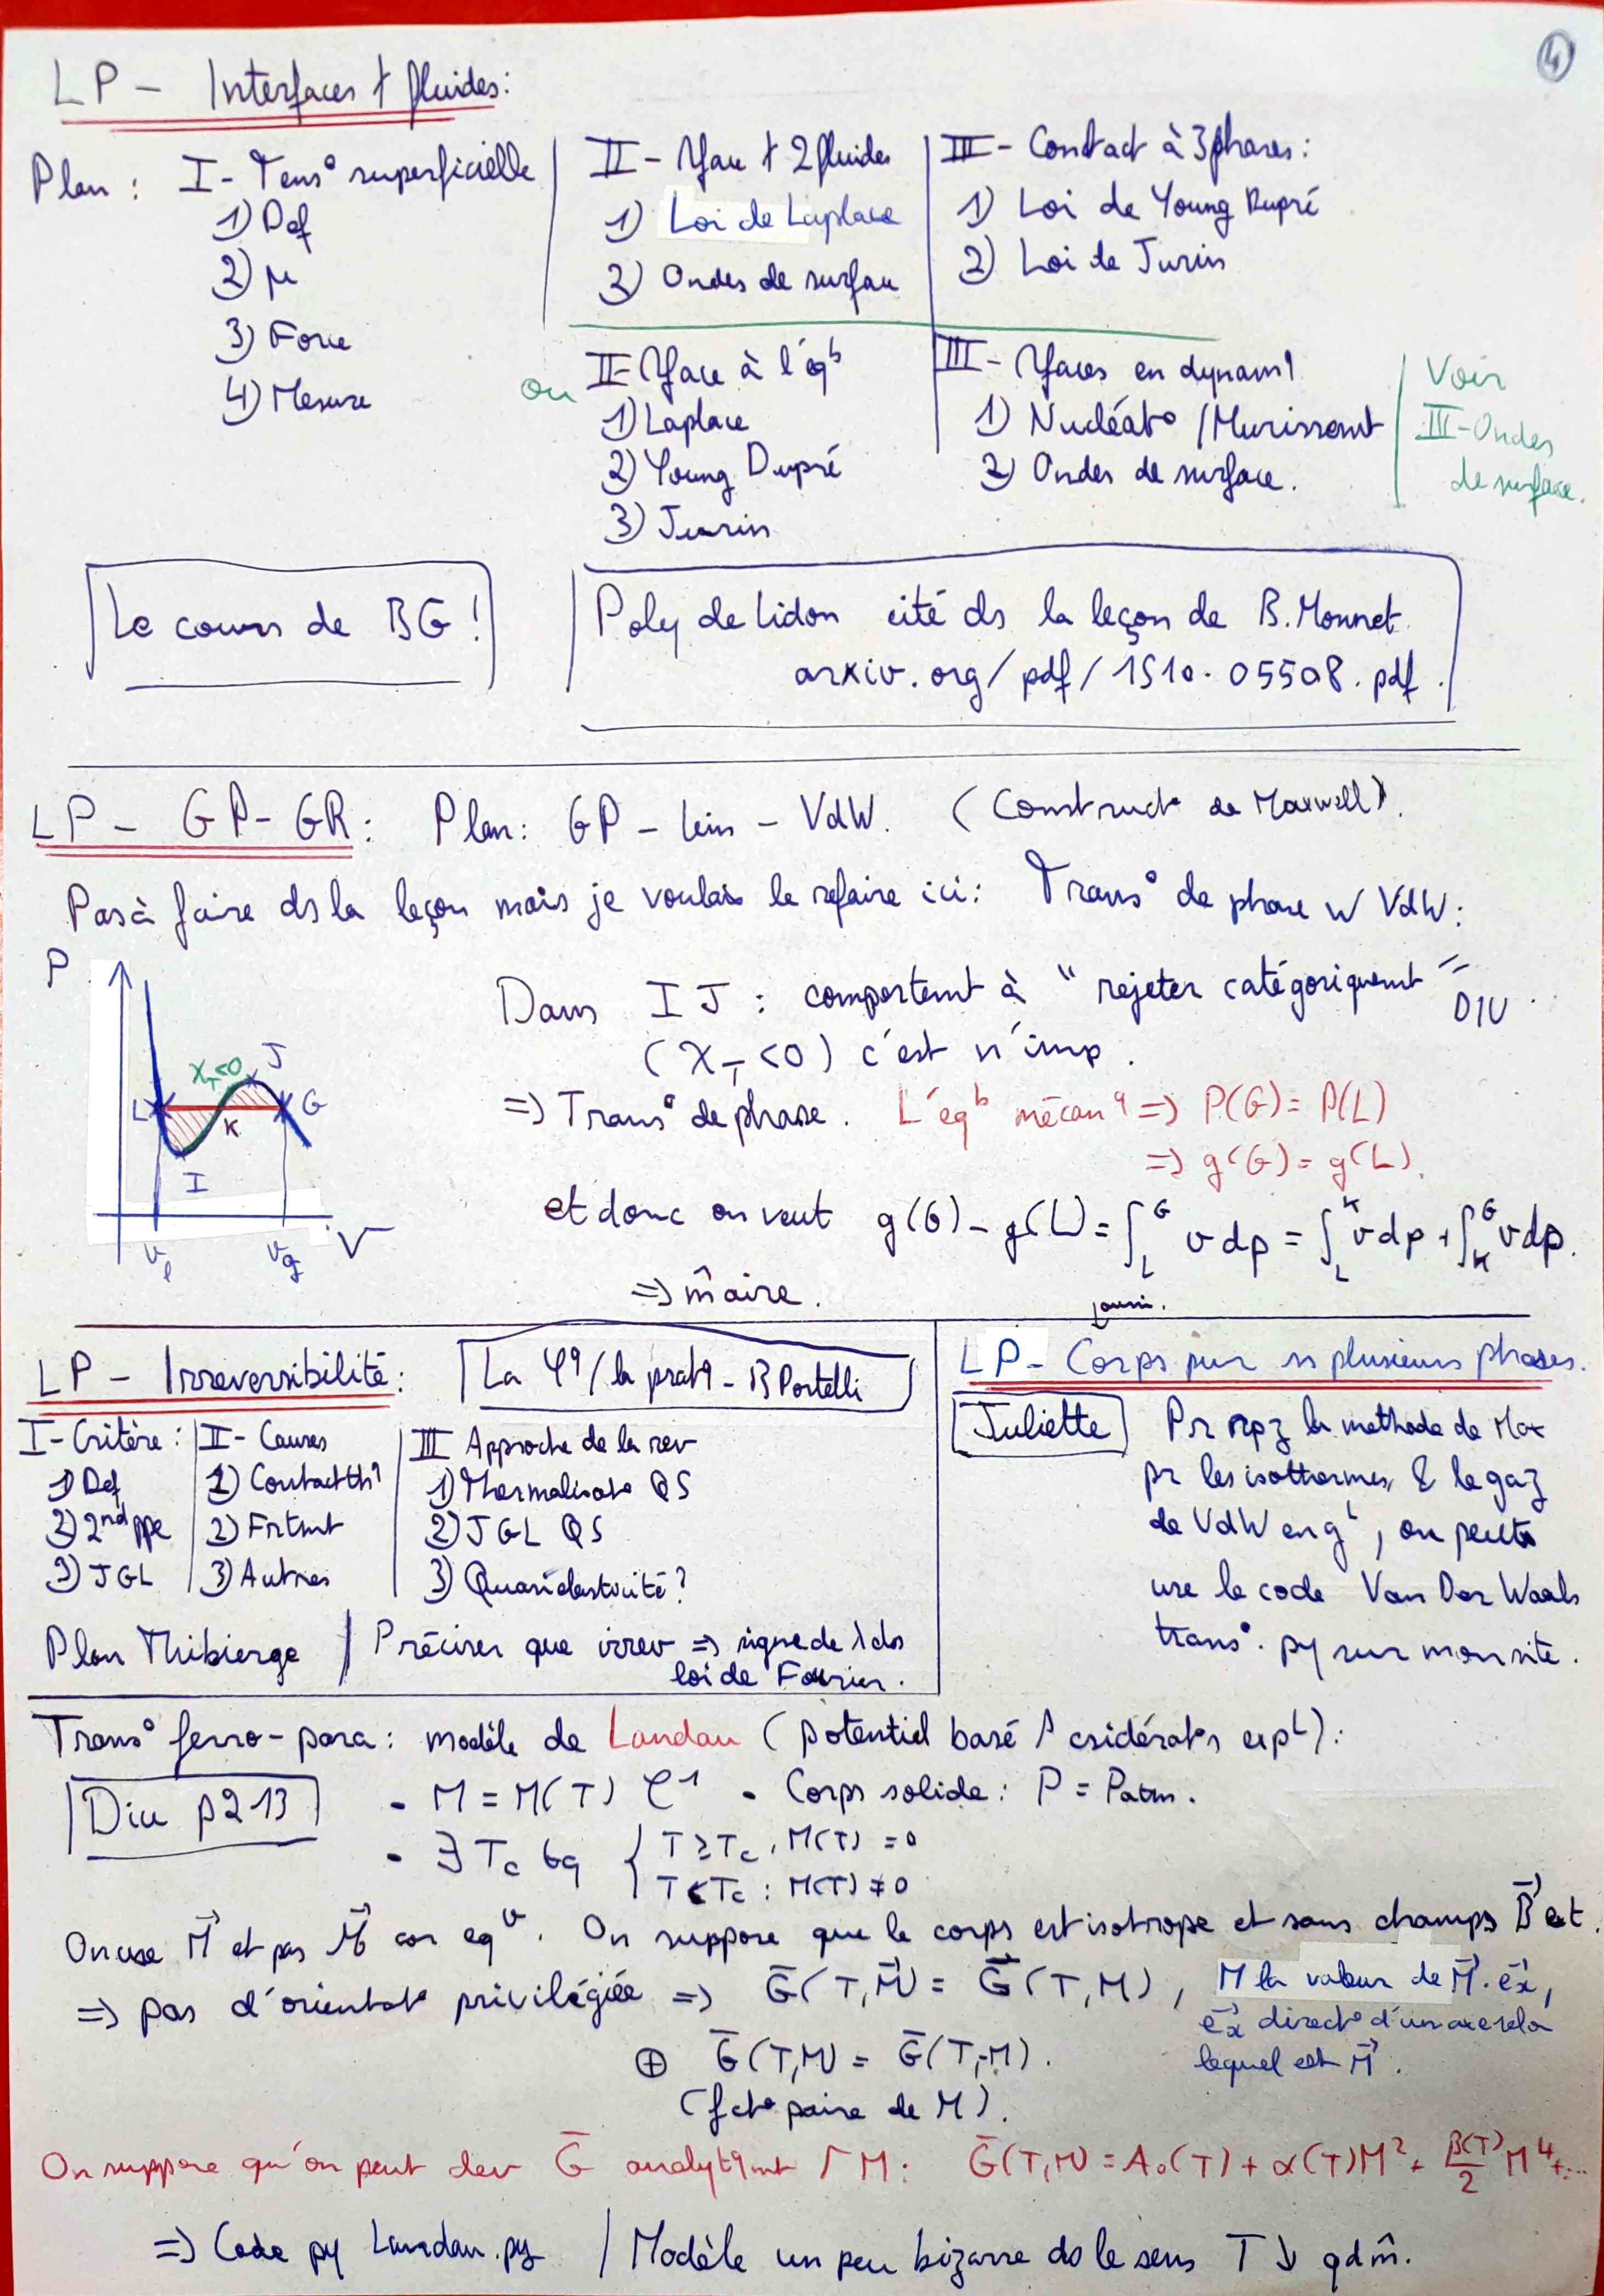 4
LP - Interfaces † fluides :
Plan : I - Tens° superficielle
1) Def
2) μ
3) Force
4) Mesure
II - Yface † 2 fluides
1) Loi de Laplace
2) Ondes de surface
III - Contact à 3 phases :
1) Loi de Young Dupré
2) Loi de Jurin
ou
II - Yface à l'éq^b
1) Laplace
2) Young Dupré
3) Jurin
III - Yfaces en dynam^q
1) Nucléat° / Murissemt
2) Ondes de surface.
Voir
III - Ondes
de surface.
Le cours de BG !
Poly de Lidon cité ds la leçon de B. Monnet.
arxiv.org/pdf/1510.05508.pdf.
LP - GP - GR : Plan : GP - - VdW. (Construct° de Maxwell).
Pas à faire ds la leçon mais je voulais le refaire ici : Trans° de phase w VdW :
P
χ_T<0
J
L
K
G
I
v_l
v_g
V
Dans IJ : comportemt à "rejeter catégoriquemt" DIU.
(χ_T <0) c'est n'imp.
=> Trans° de phase. L'éq^b mécan^q => P(G) = P(L)
=> g(G) = g(L).
et donc on veut g(G) - g(L) = ∫_L^G v dp = ∫_L^K v dp + ∫_K^G v dp.
=> m̂ aire.
LP - Irreversibilité :
La φ^q / la prat^q - B Portelli
I - Critère :
1) Def
2) 2nd ppe
3) JGL
II - Causes
1) Contact th^q
2) Frtmt
3) Autres
III Approche de la rev
1) Thermalisat° QS
2) JGL QS
3) Quasielasticité ?
Plan Thibierge / Préciser que irrev => signe de λ ds
loi de Fourier.
LP - Corps pur ss plusieurs phases.
Juliette
Pr rpz la methode de Max
pr les isothermes, & le gaz
de VdW en g^l, on peut
use le code Van Der Waals
trans°.py sur mon site.
Trans° ferro-para : modèle de Landau (potentiel basé / csidérat°s exp^L) :
Diu p213
- M = M(T) C^1 - Corps solide : P = Patm.
- ∃ Tc tq { T ≥ Tc, M(T) = 0
T < Tc : M(T) ≠ 0
On use M⃗ et pas ℳ⃗ car eq^v. On suppose que le corps est isotrope et sans champs B⃗ ext.
=> pas d'orientat° privilégiée => G̅(T,M⃗) = G̅(T,M), M la valeur de M⃗.e⃗x,
e⃗x direct° d'un axe selon
lequel est M⃗.
⊕ G̅(T,M) = G̅(T,-M).
(fct° paire de M).
On suppose qu'on peut dev G̅ analyt^qmt / M : G̅(T,M) = A₀(T) + α(T)M² + β(T)/2 M⁴ + ...
=> Code py Landau.py / Modèle un peu bizarre ds le sens T ↘ qd m̂.